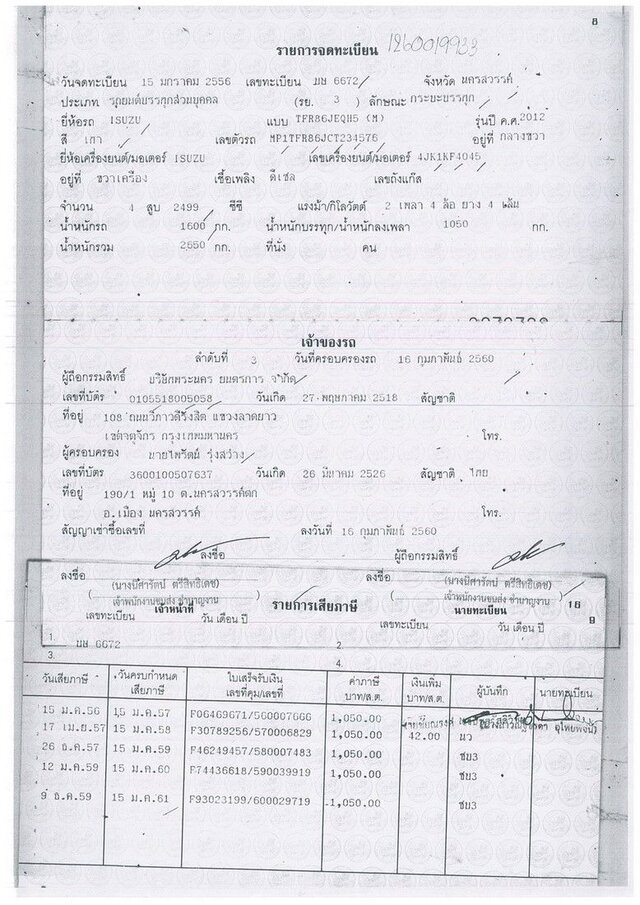 8
รายการจดทะเบียน 1260019933
วันจดทะเบียน 15 มกราคม 2556 เลขทะเบียน บษ 6672 จังหวัด นครสวรรค์
ประเภท รถยนต์บรรทุกส่วนบุคคล (รย. 3 ) ลักษณะ กระบะบรรทุก
ยี่ห้อรถ ISUZU แบบ TFR86JEQH5 (M) รุ่นปี ค.ศ. 2012
สี เทา เลขตัวรถ MP1TFR86JCT234576 อยู่ที่ กลางขวา
ยี่ห้อเครื่องยนต์/มอเตอร์ ISUZU เลขเครื่องยนต์/มอเตอร์ 4JK1KF4045
อยู่ที่ ขวาเครื่อง เชื้อเพลิง ดีเซล เลขถังแก๊ส
จำนวน 4 สูบ 2499 ซีซี แรงม้า/กิโลวัตต์ 2 เพลา 4 ล้อ ยาง 4 เส้น
น้ำหนักรถ 1600 กก. น้ำหนักบรรทุก/น้ำหนักลงเพลา 1050 กก.
น้ำหนักรวม 2550 กก. ที่นั่ง คน
เจ้าของรถ
ลำดับที่ 3 วันที่ครอบครองรถ 16 กุมภาพันธ์ 2560
ผู้ถือกรรมสิทธิ์ บริษัทพระนคร ยนตรการ จำกัด
เลขที่บัตร 0105518005058 วันเกิด 27 พฤษภาคม 2518 สัญชาติ
ที่อยู่ 108 ถนนวิภาวดีรังสิต แขวงลาดยาว
เขตจตุจักร กรุงเทพมหานคร โทร.
ผู้ครอบครอง นายไพรัตน์ รุ่งสว่าง
เลขที่บัตร 3600100507637 วันเกิด 26 มีนาคม 2526 สัญชาติ ไทย
ที่อยู่ 190/1 หมู่ 10 ต.นครสวรรค์ตก
อ.เมือง นครสวรรค์ โทร.
สัญญาเช่าซื้อเลขที่ ลงวันที่ 16 กุมภาพันธ์ 2560
ลงชื่อ ผู้ถือกรรมสิทธิ์
ลงชื่อ (นางนิศารัตน์ ตรีสิทธิเดช) ลงชื่อ (นางนิศารัตน์ ตรีสิทธิเดช)
เจ้าพนักงานขนส่ง ชำนาญงาน รายการเสียภาษี เจ้าพนักงานขนส่ง ชำนาญงาน 16
เจ้าหน้าที่ นายทะเบียน 9
เลขทะเบียน วัน เดือน ปี เลขทะเบียน วัน เดือน ปี
1. บษ 6672 2.
3. 4.
วันเสียภาษี วันครบกำหนดเสียภาษี ใบเสร็จรับเงิน เลขที่คุม/เลขที่ ค่าภาษี บาท/ส.ต. เงินเพิ่ม บาท/ส.ต. ผู้บันทึก นายทะเบียน
15 ม.ค.56 15 ม.ค.57 F06469671/560007666 1,050.00
17 เม.ย.57 15 ม.ค.58 F30789256/570006829 1,050.00 42.00 นว
26 ธ.ค.57 15 ม.ค.59 F46249457/580007483 1,050.00 ชย3
12 ม.ค.59 15 ม.ค.60 F74436618/590039919 1,050.00 ชย3
9 ธ.ค.59 15 ม.ค.61 F93023199/600029719 1,050.00 ชย3